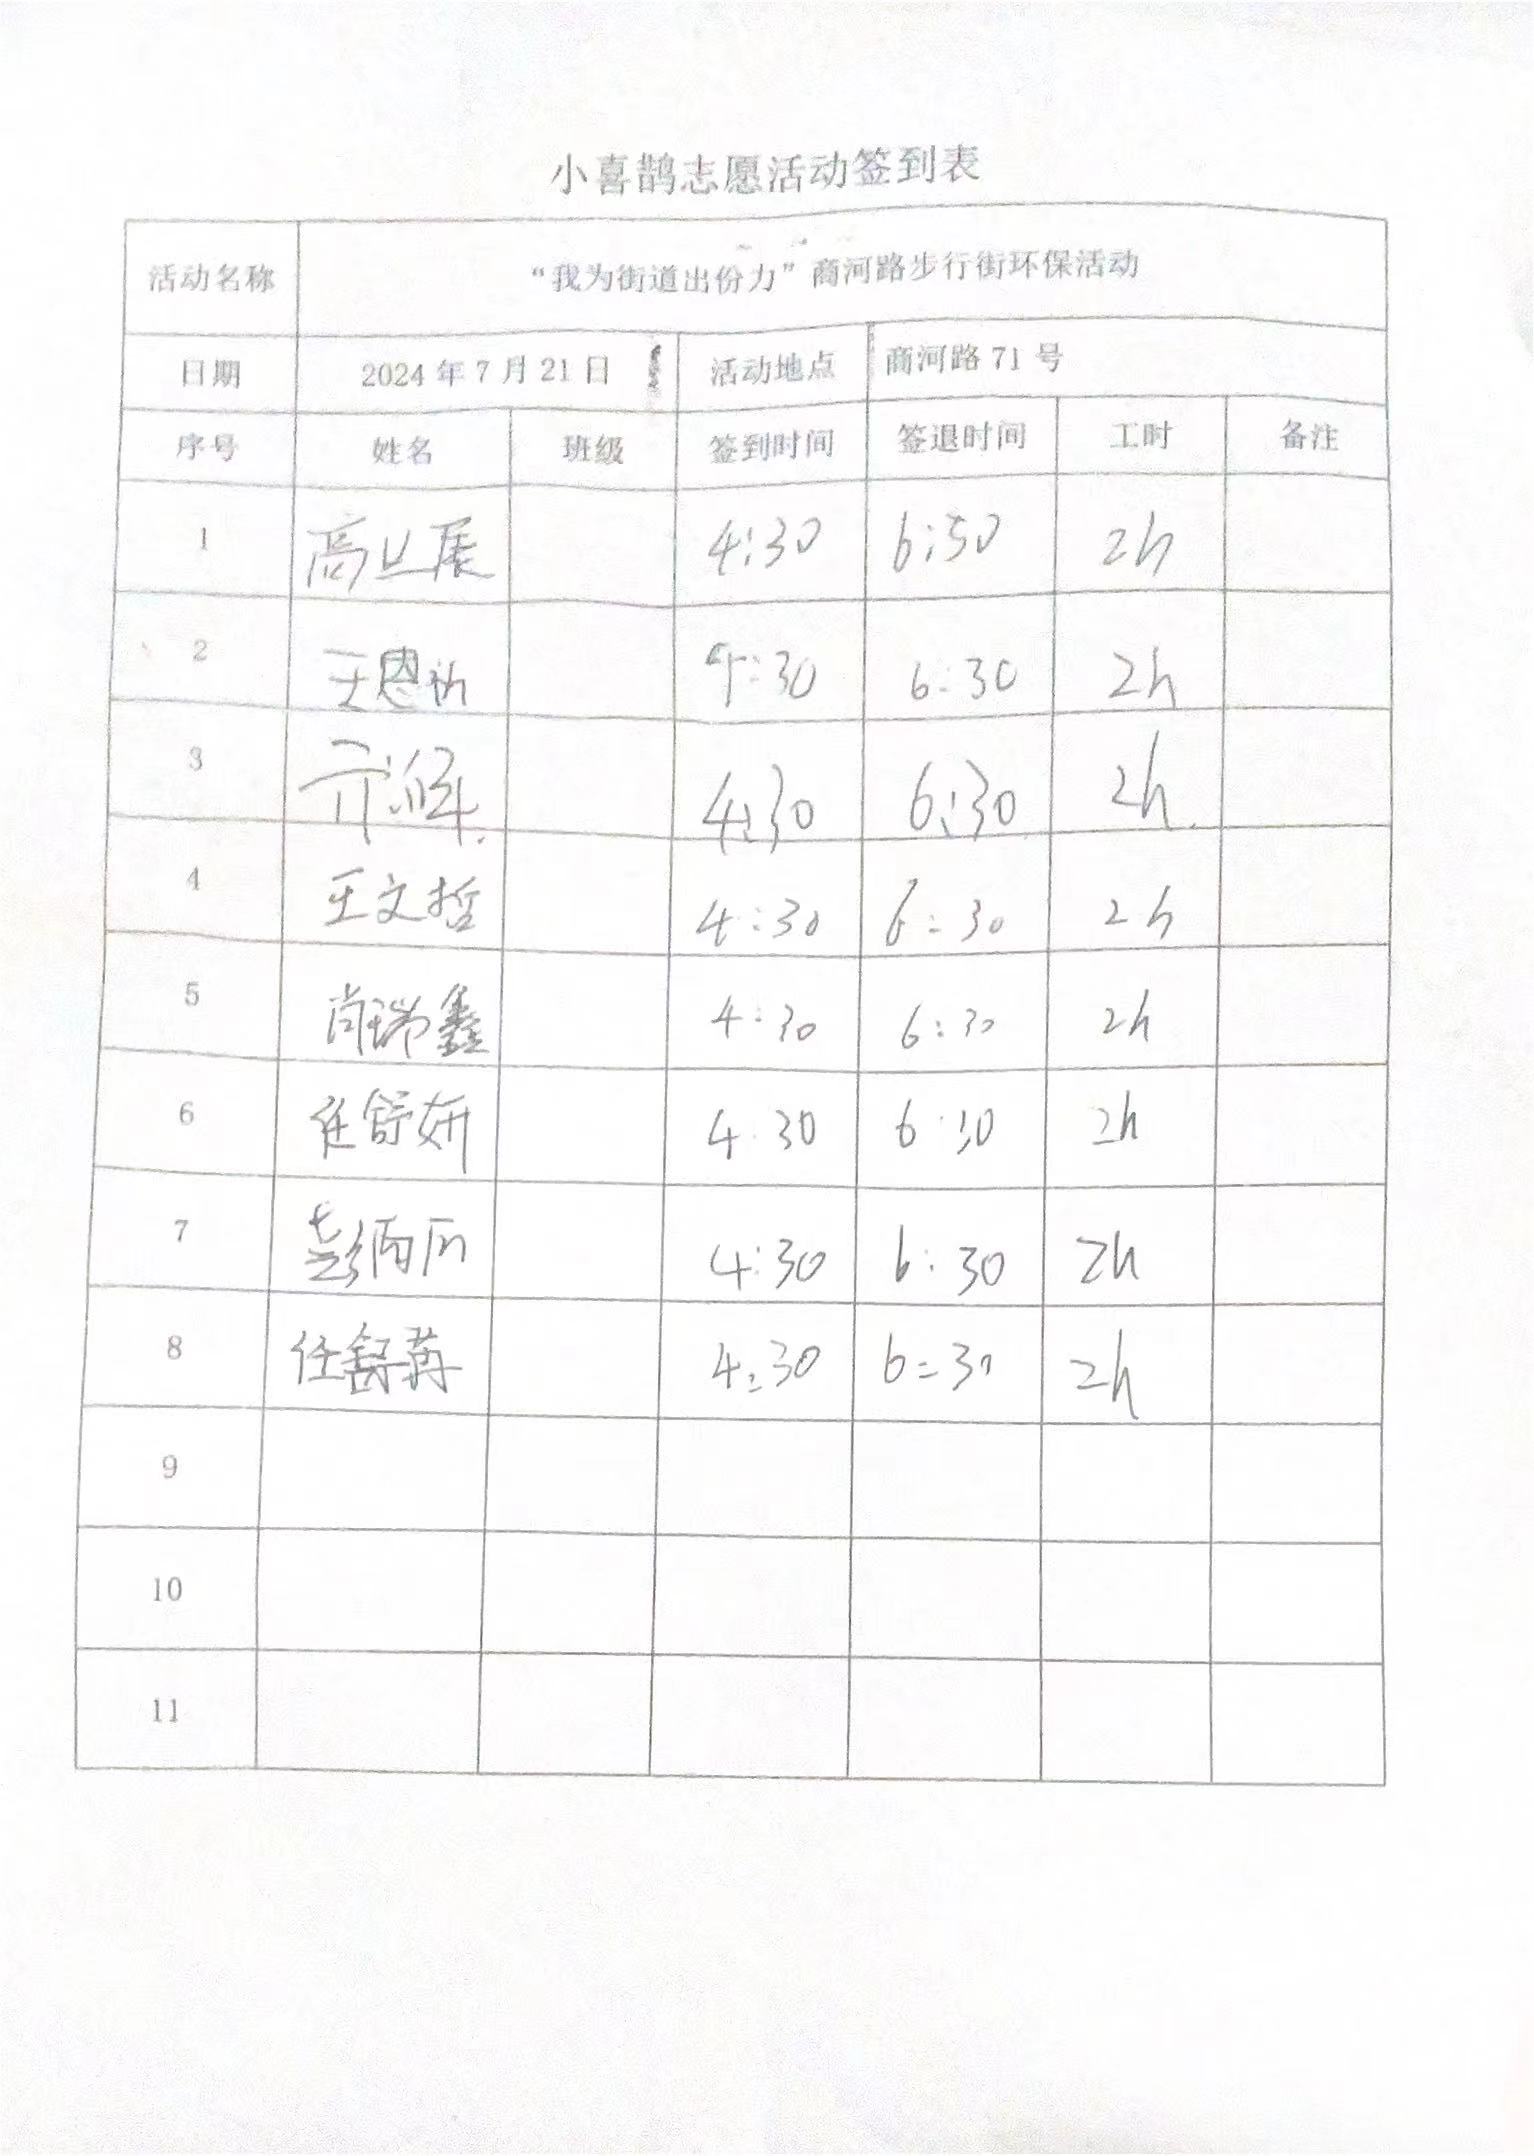 小喜鹊志愿活动签到表
活动名称 “我为街道出份力”商河路步行街环保活动
日期 2024年7月21日 活动地点 商河路71号
序号 姓名 班级 签到时间 签退时间 工时 备注
1 高上展 4:30 6:30 2h
2 王恩祈 4:30 6:30 2h
3 4:30 6:30 2h
4 王文哲 4:30 6:30 2h
5 肖瑞鑫 4:30 6:30 2h
6 任舒妍 4:30 6:30 2h
7 彭 4:30 6:30 2h
8 任舒苒 4:30 6:30 2h
9
10
11